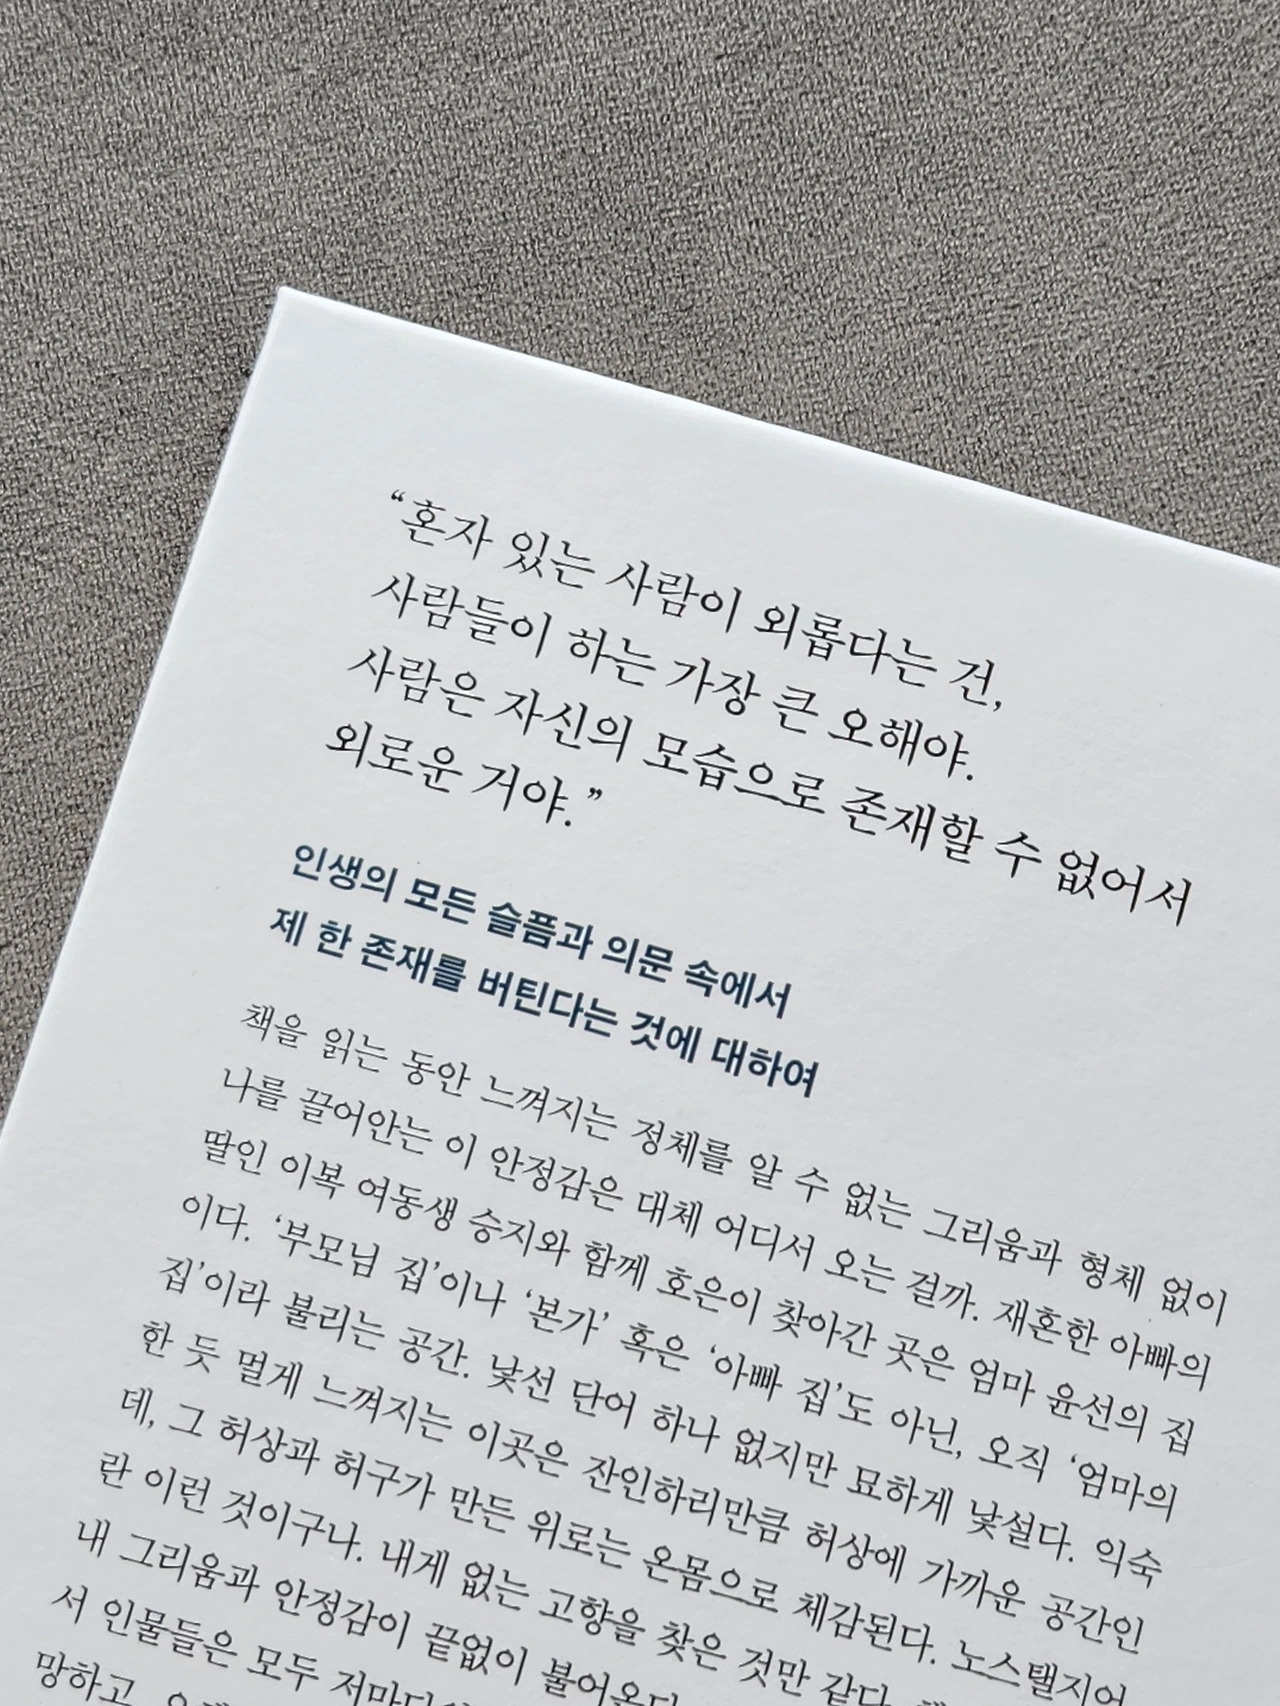 “혼자 있는 사람이 외롭다는 건,
사람들이 하는 가장 큰 오해야.
사람은 자신의 모습으로 존재할 수 없어서
외로운 거야.”
인생의 모든 슬픔과 의문 속에서
제 한 존재를 버틴다는 것에 대하여
책을 읽는 동안 느껴지는 정체를 알 수 없는 그리움과 형체 없이
나를 끌어안는 이 안정감은 대체 어디서 오는 걸까. 재혼한 아빠의
딸인 이복 여동생 승지와 함께 호은이 찾아간 곳은 엄마 윤선의 집
이다. ‘부모님 집’이나 ‘본가’ 혹은 ‘아빠 집’도 아닌, 오직 ‘엄마의
집’이라 불리는 공간. 낯선 단어 하나 없지만 묘하게 낯설다. 익숙
한 듯 멀게 느껴지는 이곳은 잔인하리만큼 허상에 가까운 공간인
데, 그 허상과 허구가 만든 위로는 온몸으로 체감된다. 노스탤지어
란 이런 것이구나. 내게 없는 고향을 찾은 것만 같다.
내 그리움과 안정감이 끝없이 불어온다
서 인물들은 모두
망하고,